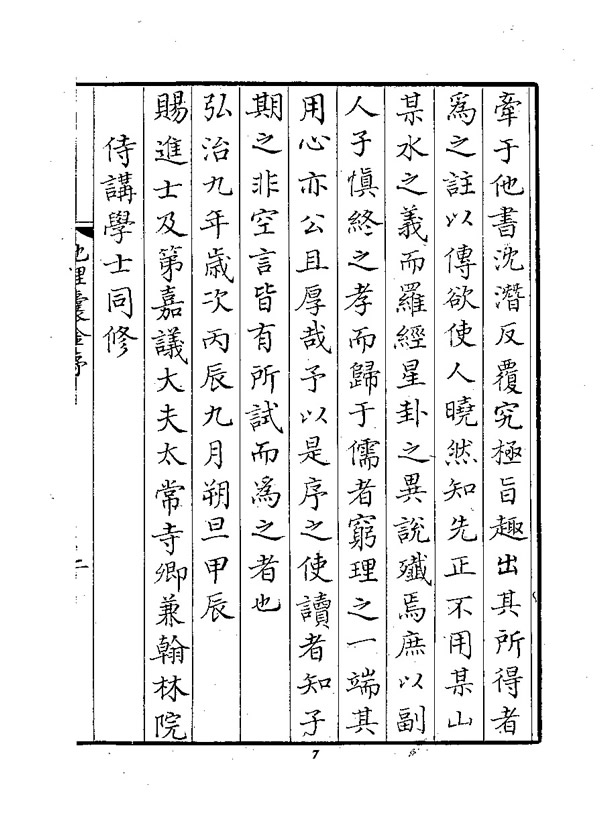 牽于他書沈潛反覆究極旨趣出其所得者
爲之註以傳欲使人曉然知先正不用某山
某水之義而羅經星卦之異說殲焉庶以副
人子愼終之孝而歸于儒者窮理之一端其
用心亦公且厚哉予以是序之使讀者知子
期之非空言皆有所試而爲之者也
弘治九年歲次丙辰九月朔旦甲辰
賜進士及第嘉議大夫太常寺卿兼翰林院
侍講學士同修
7